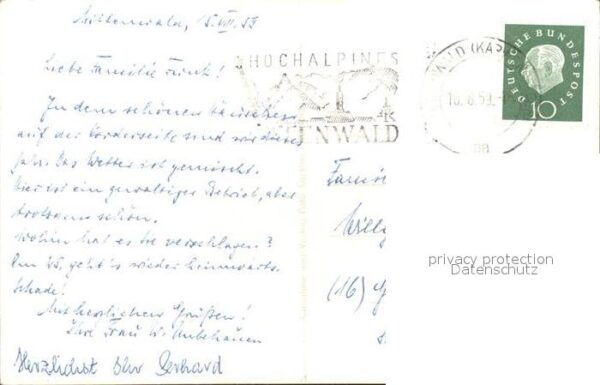 Mittenwald, 15. VIII. 59
Liebe Familie Funk!
In dem schönen Häuschen
auf der Vorderseite sind wir dieses
Jahr. Das Wetter ist gemischt.
Hier ist ein gewaltiger Betrieb, aber
trotzdem schön.
Wohin hat es Sie verschlagen?
Am 25. geht's wieder heimwärts.
Schade!
Mit herzlichen Grüßen!
Ihre Frau W. Unbehauen
Herzlichst Ihr Gerhard
HOCHALPINES
TENWALD
DEUTSCHE BUNDESPOST
10
Famil
Willy
(16)
privacy protection
Datenschutz